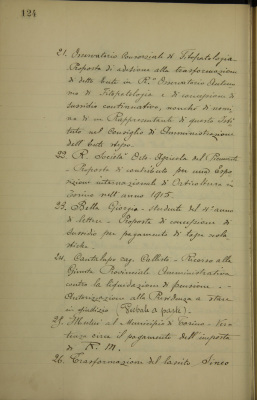 124
21. Osservatorio Consorziale di Fitopatologia
Proposta di adesione alla trasformazione
di detto Ente in R.º Osservatorio Autono
mo di Fitopatologia e di concessione di
sussidio continuativo, nonchè di nomi
na di un Rappresentante di questo Isti
tuto nel Consiglio di Amministrazione
dell'Ente stesso.
22. R. Società Orto-Agricola del Piemonte
- Proposta di contributo per una Espo
sizione internazionale di Orticoltura in
Torino nell'anno 1915.
23. Bella Giorgio - studente del 4º anno
di lettere - Proposta di concessione di
sussidio per pagamento di tasse scola
stiche.
24. Cantalupo rag. - Ricorso alla
Giunta Provinciale Amministrativa
contro la liquidazione di pensione. -
Autorizzazione alla Presidenza a stare
in giudizio (Verbale a parte).
25. al Municipio di Torino - Ver
tenza circa il pagamento dell'imposta
di R. M.
26. Trasformazione del lascito Sineo